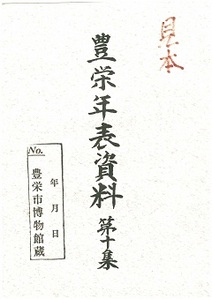 見本
豊栄年表資料 第十集
No.
年 月 日
豊栄市博物館蔵